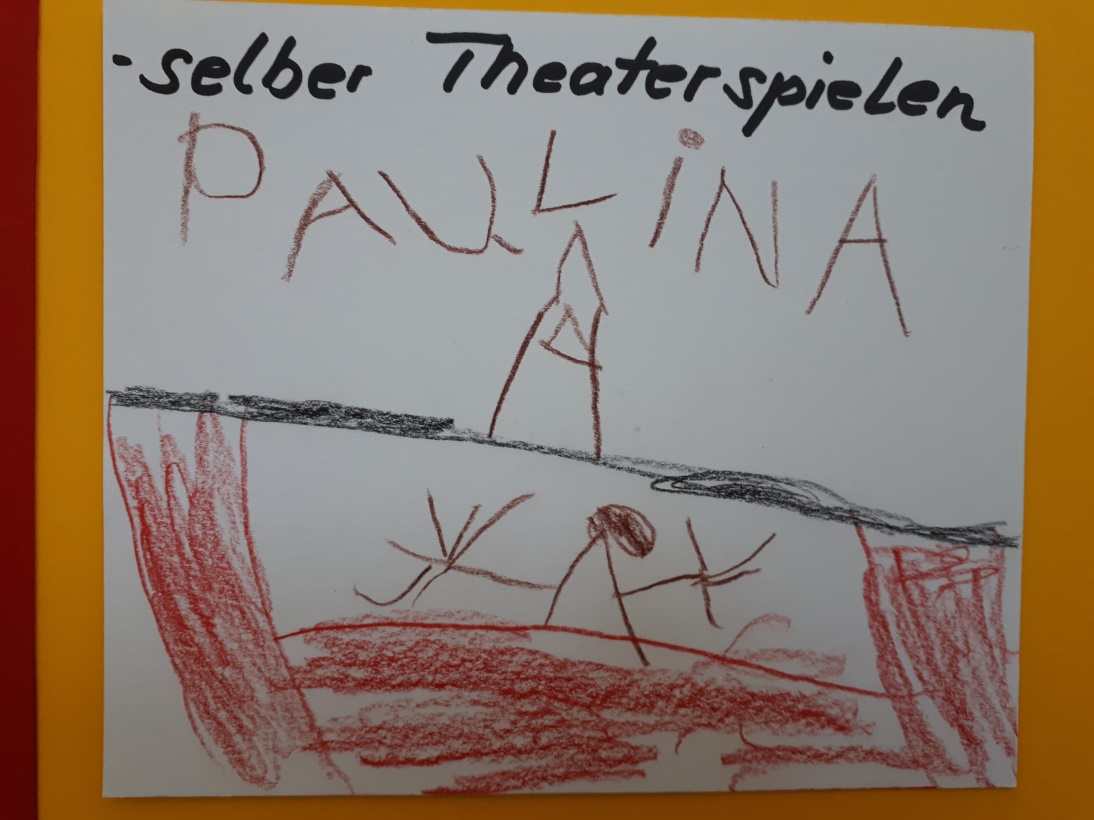 -selber Theaterspielen
PAULiNA